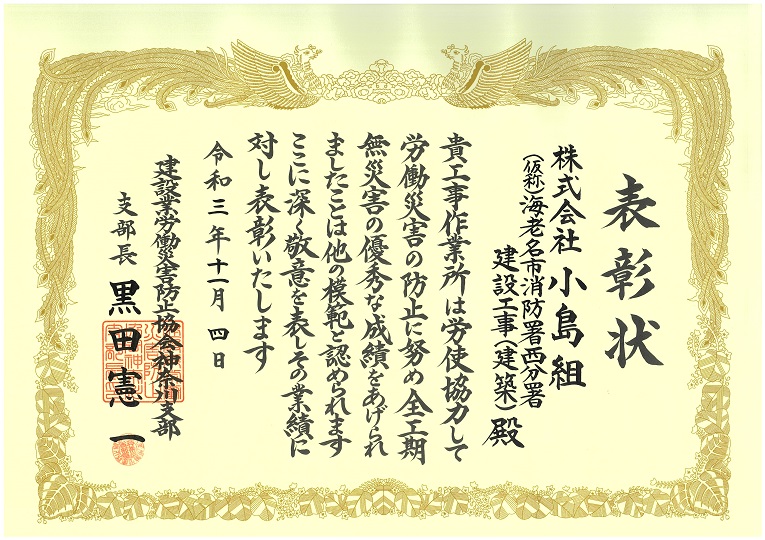 表彰状
株式会社 小島組
(仮称)海老名市消防署西分署
建設工事(建築) 殿
貴工事作業所は労使協力して
労働災害の防止に努め全工期
無災害の優秀な成績をあげられ
ましたことは他の模範と認められます
ここに深く敬意を表しその業績に
対し表彰いたします
令和三年十一月四日
建設業労働災害防止協会神奈川支部
支部長 黒田憲一